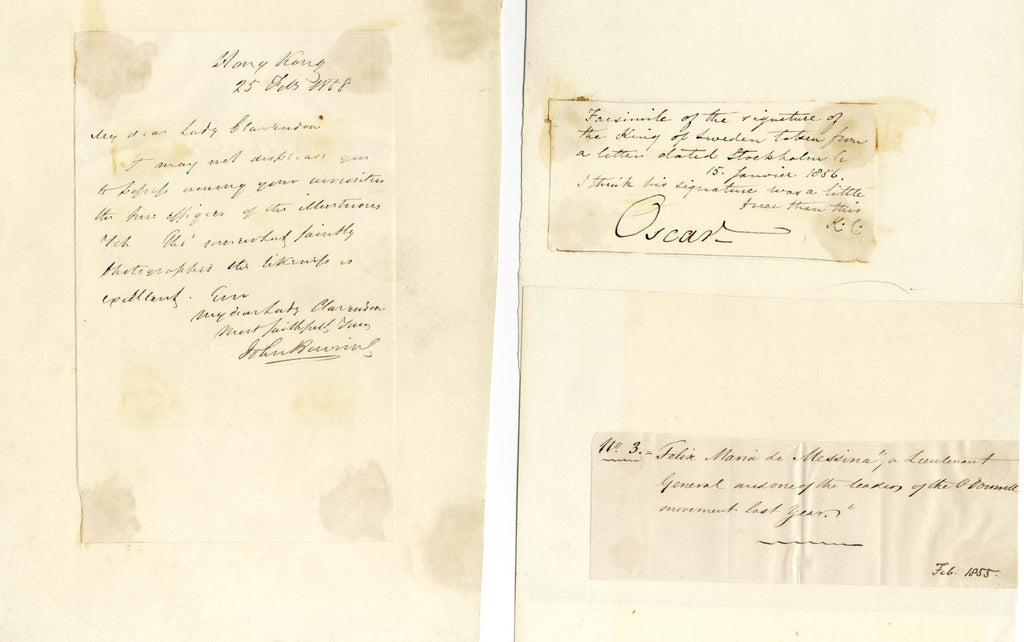 Hong Kong
25 Feb 1858
My dear Lady Clarendon
It may not displease you
to possess among your curiosities
the true effigies of the illustrious
Yeh Tho' somewhat faintly
photographed the likeness is
excellent. Ever
My dear Lady Clarendon
Most faithfully Yours
John Bowring
Facsimile of the signature of
the King of Sweden taken from
a letter dated Stockholm le
15. Janvier 1856.
I think his signature was a little
freer than this
K. C.
Oscar
No. 3. = Felix Maria de Messina", a Lieutenant
General and one of the leaders of the O'Donnell
movement last Year."
Feb. 1855.